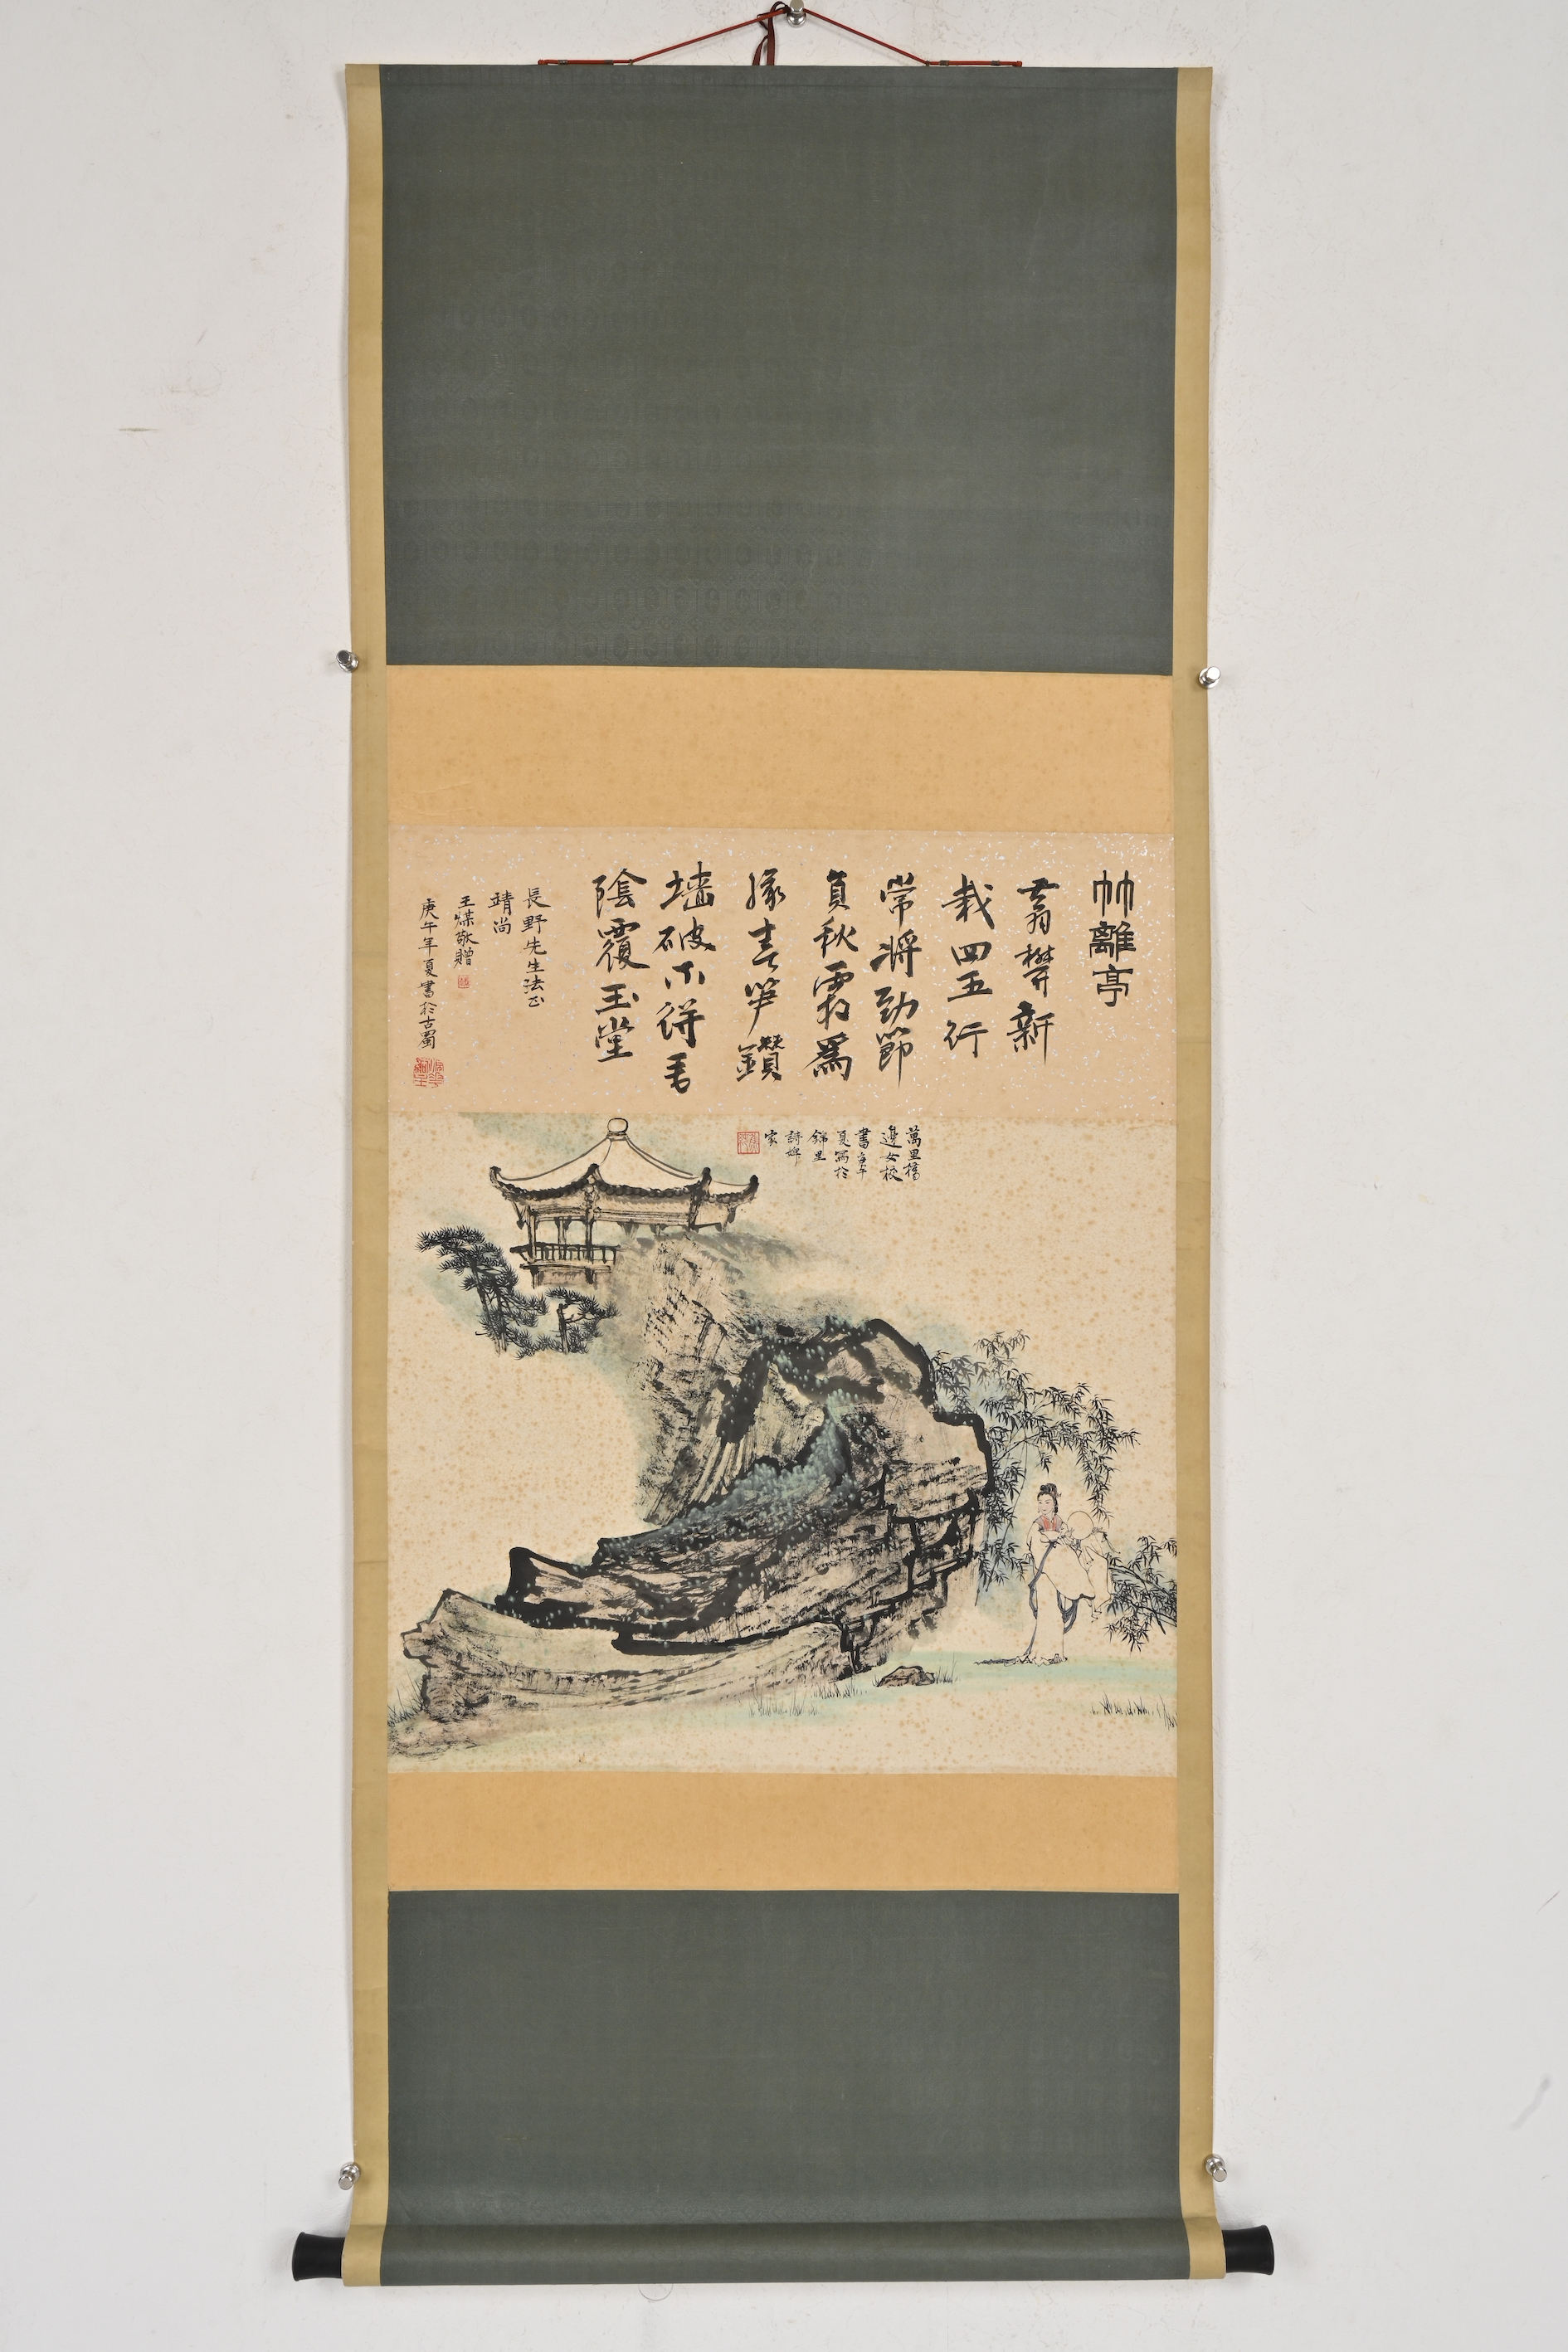 竹離亭
蓊欝新
栽四五行
常將勁節
負秋霜爲
緣春笋鑽
墻破不得垂
陰覆玉堂
長野先生法正
靖尚
王煤敬贈
庚午年夏書於古蜀
萬里橋
邊女校
書庚午
夏寫於
錦里
詩婢
家